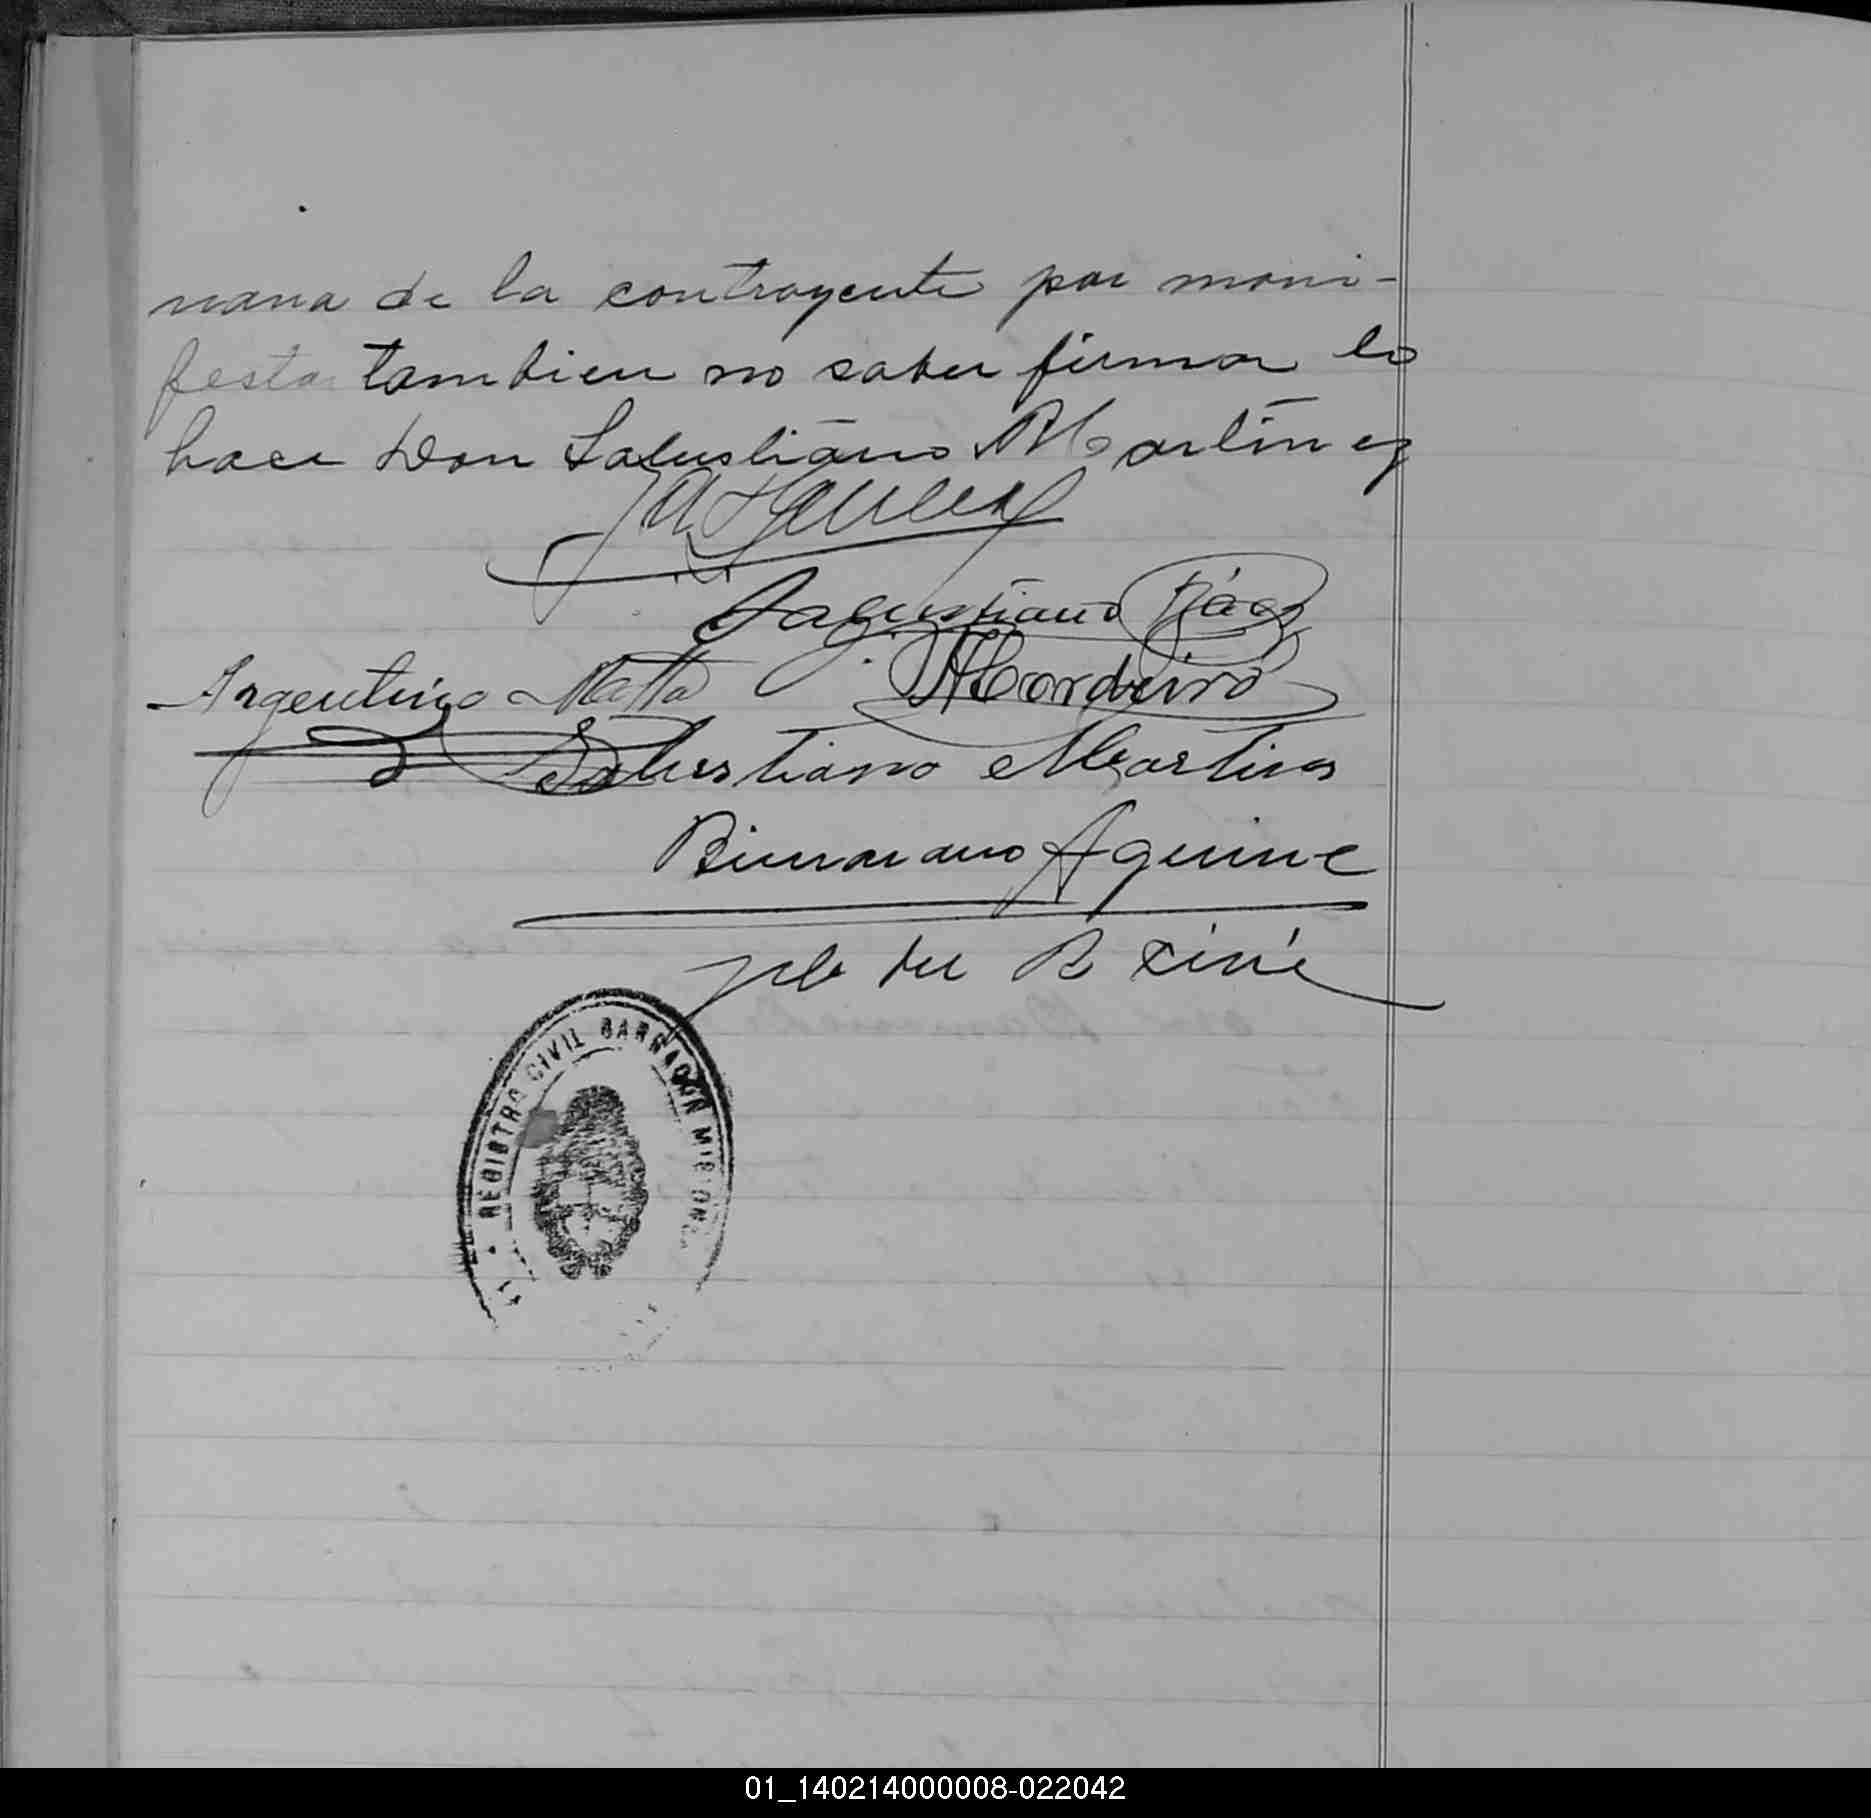 nana de la contrayente por mani-
festar tambien no saber firmar lo
hace Don Salustiano Martínez
Salustiano Báez
Argentino Matta
A Cordeiro
Salustiano Martines
Bienvenano Aguirre
Jefe del R Civil
REGISTRO CIVIL BARRACON MISIONES
01_140214000008-022042